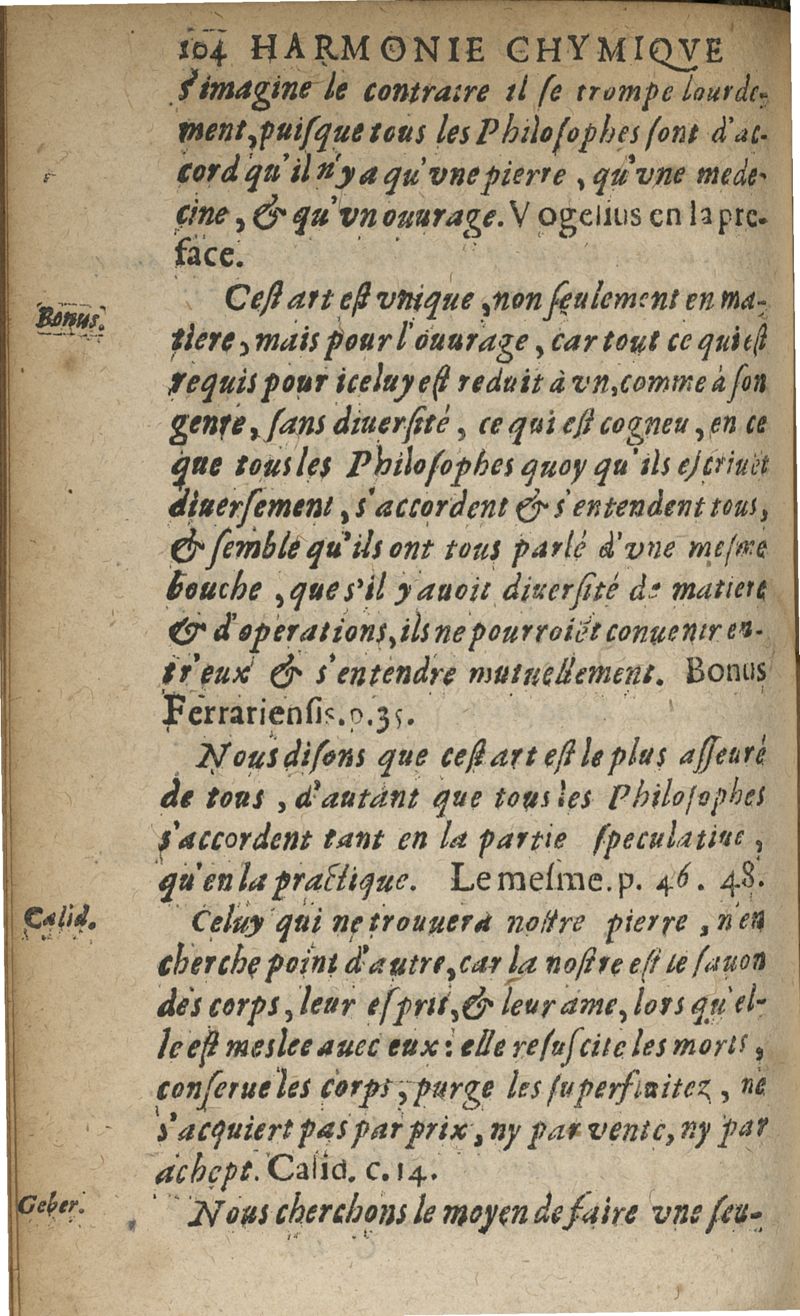 104 HARMONIE CHYMIQVE
s'imagine le contraire il ſe trompe lourde-
ment, puiſque tous les Philoſophes ſont d'ac-
cord qu'il n'y a qu'vne pierre, qu'vne mede-
cine, & qu'vn ouurage. Vogelius en la pre-
face.
Bonus.
Ceſt art eſt vnique, non ſeulement en ma-
tiere, mais pour l'ouurage, car tout ce qui eſt
requis pour iceluy eſt reduit à vn, comme à ſon
genre, ſans diuerſité, ce qui eſt cogneu, en ce
que tous les Philoſophes quoy qu'ils eſcriuēt
diuerſement, s'accordent & s'entendent tous,
& ſemble qu'ils ont tous parlé d'vne meſme
bouche, que s'il y auoit diuerſité de matiere
& d'operations, ils ne pourroiēt conuenir en-
tr'eux & s'entendre mutuellement. Bonus
Ferrarienſis. p. 35.
Nous diſons que ceſt art eſt le plus aſſeuré
de tous, d'autant que tous les Philoſophes
s'accordent tant en la partie ſpeculatiue,
qu'en la practique. Le meſme. p. 46. 48.
Calid.
Celuy qui ne trouuera noſtre pierre, n'en
cherche point d'autre, car la noſtre eſt le ſauon
des corps, leur eſprit, & leur ame, lors qu'el-
le eſt meslee auec eux: elle reſuſcite les morts,
conſerue les corps, purge les ſuperfluitez, ne
s'acquiert pas par prix, ny par vente, ny par
achept. Calid. c. 14.
Geber.
Nous cherchons le moyen de faire vne ſeu-